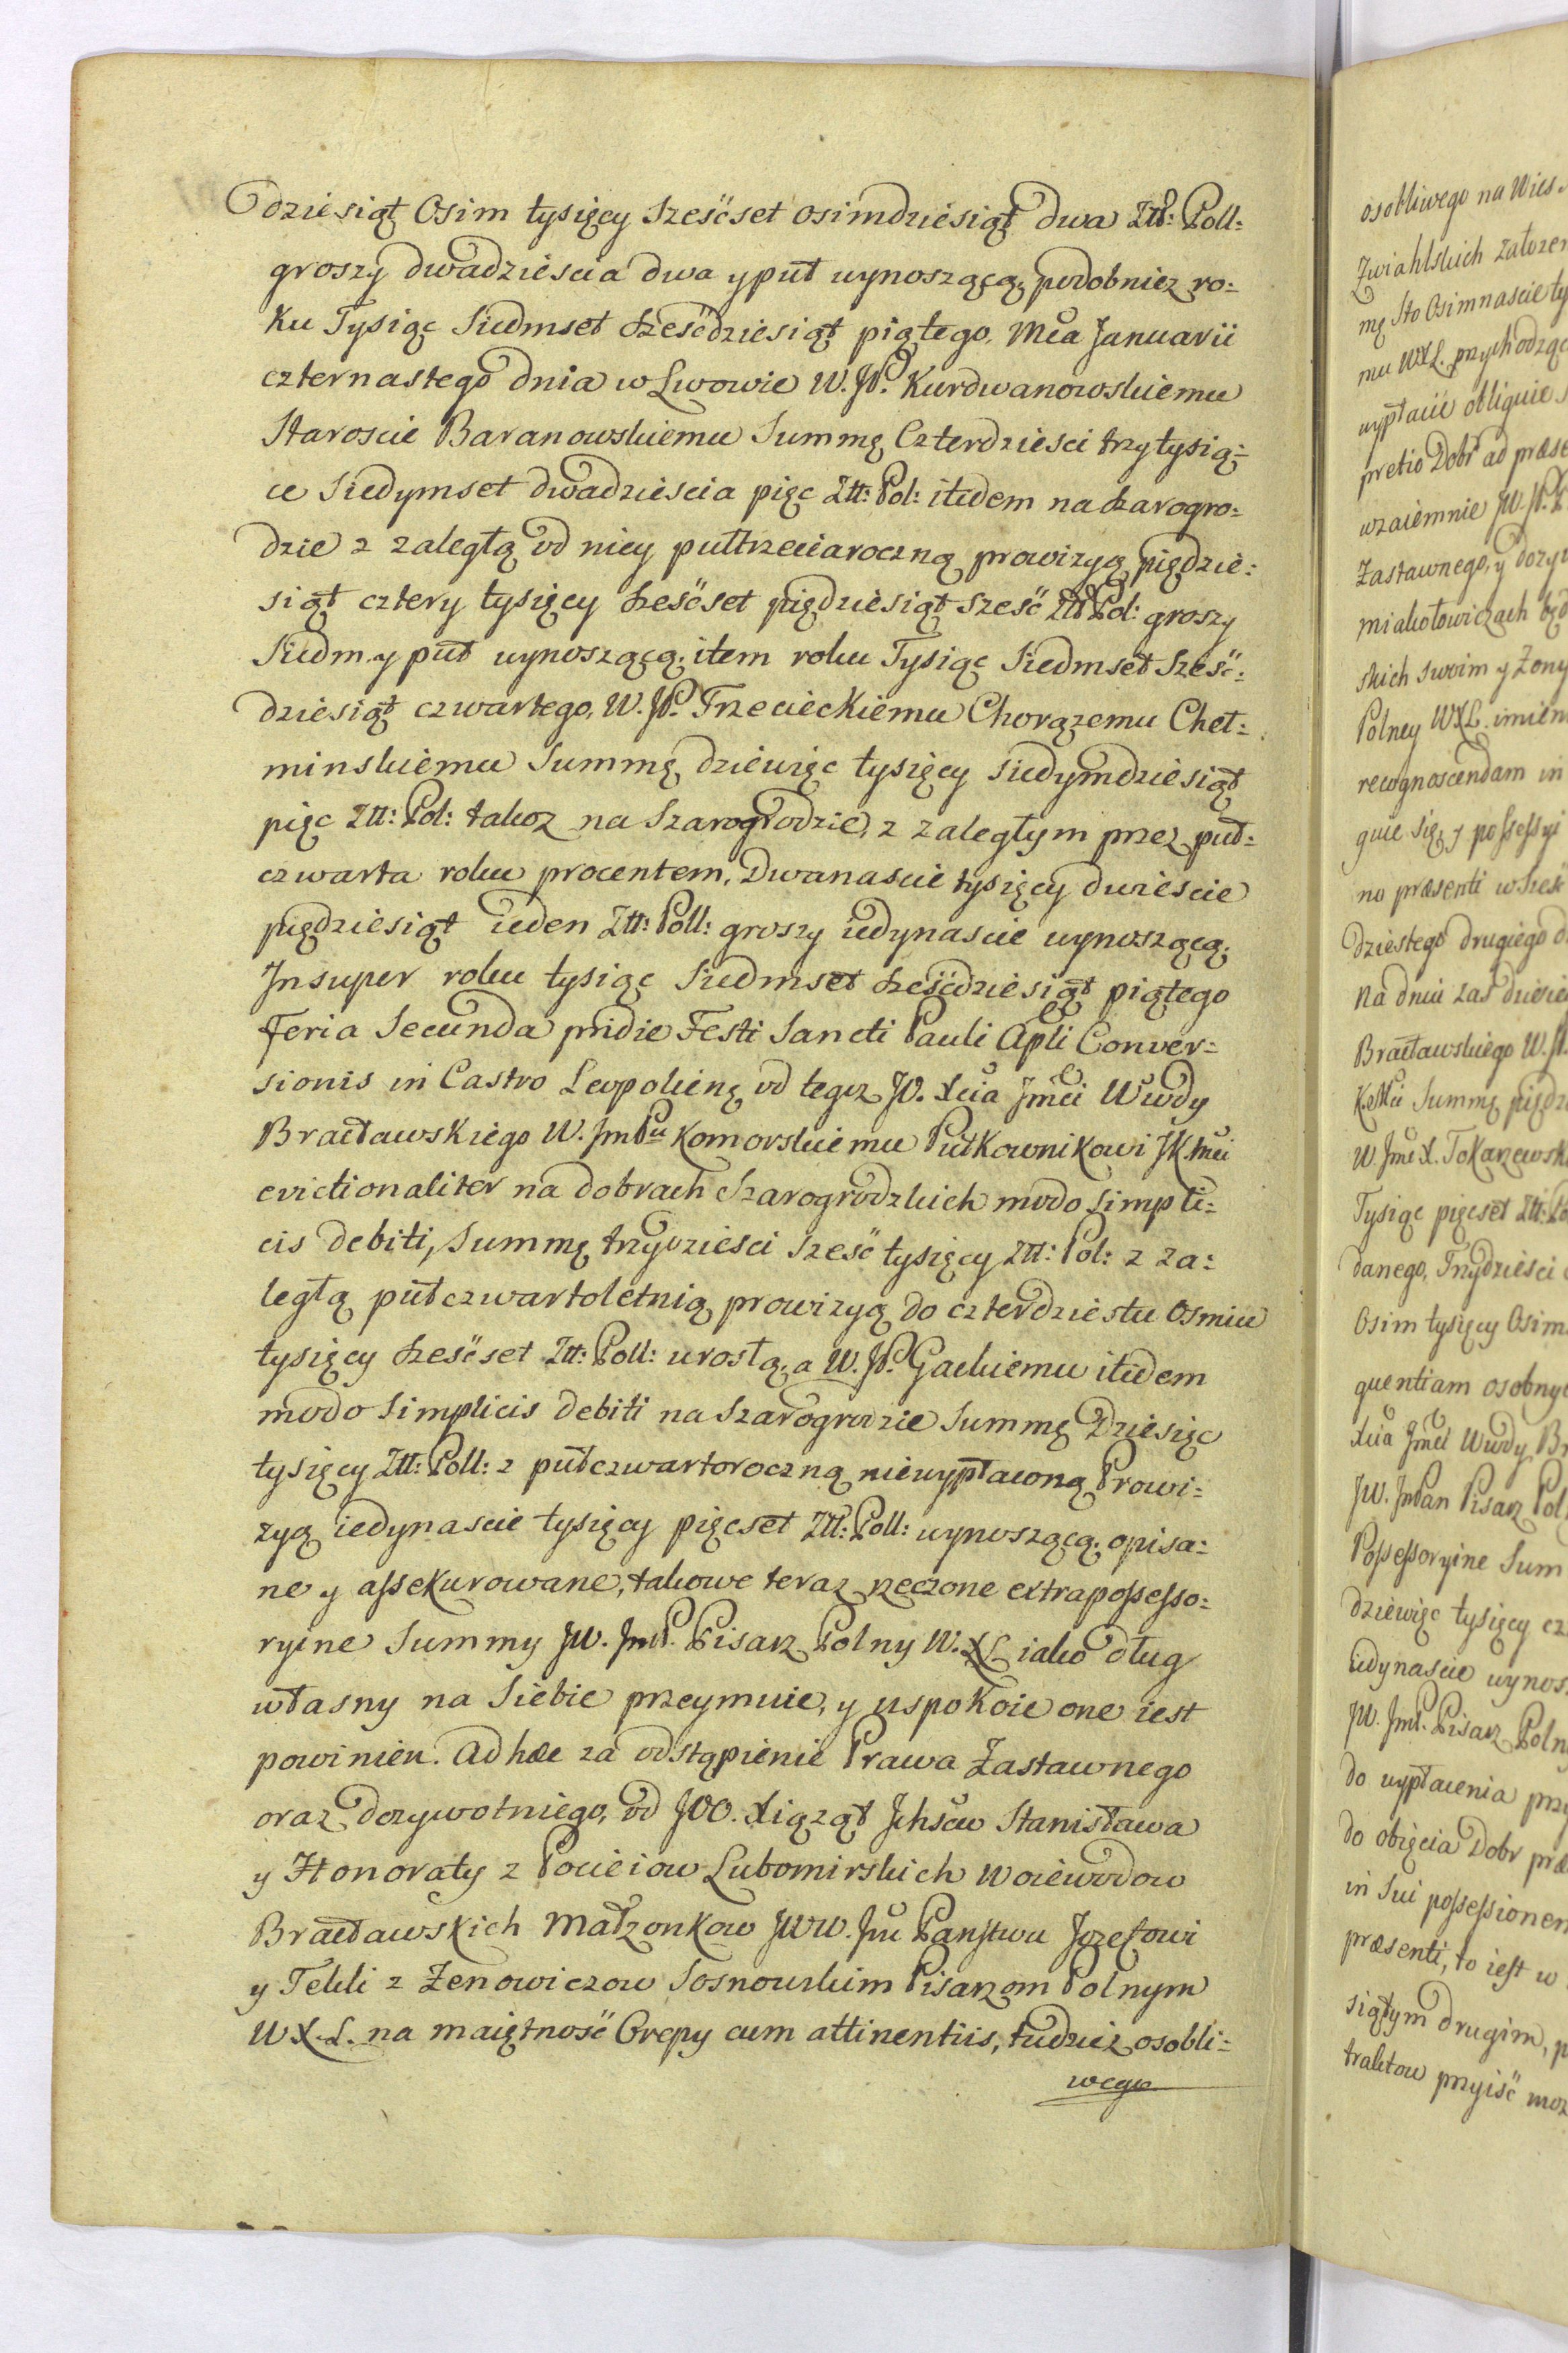 dziesiąt Osim tysięcy Sześćset osimdziesiąt dwa Złł: Poll:
groszy dwadziescia dwa y puł uynoszącą, podobniez ro-
ku Tysiąc Siedmset sześćdziesiąt piątego, Mca Januarii
czternastego dnia w Lwowie W. JP. Kurdwanowskiemu
Staroscie Baranowskiemu Summę Czterdziesci trzy tysią-
ce Siedymset dwadziescia pięc Złł: Pol: itidem na szarogro-
dzie z zaległą od niey pułtrzeciaroczną prowizyą pięździe-
siąt cztery tysięcy sześćset pięździesiąt sześć Złł Pol: groszy
Siedm y puł uynoszącą; item roku Tysiąc Siedmset Sześć-
dziesiąt czwartego, W. JP. Trzecieckiemu Chorązemu Cheł-
minskiemu Summę dziewięc tysięcy siedymdziesiąt
pięc Złł: Pol: takoz na Szarogrodzie, z zaległym przez puł-
czwarta roku procentem, Dwanascie tysięcy dwiescie
pięździesiąt ieden Złł: Poll: groszy iedynascie uynoszącą,
Insuper roku tysiąc Siedmset sześćdziesiąt piątego
Feria Secunda pridie Festi Sancti Pauli Apli Conver-
sionis in Castro Leopolieng od tegoz JO. Xcia Jmci Wwdy
Bracławskiego W. JmPu Komorskiemu Pułkownikowi JKMci
evictionaliter na dobrach Szarogrodzkich modo simpli-
cis debiti, Summę trzydziesci sześć tysięcy Złł: Pol: z za-
ległą pułczwartoletnią prowizyą do czterdziestu Osmiu
tysięcy sześćset Złł: Poll: urosłą, a W. JP. Gackiemu itidem
modo Simplicis debiti na Szarogrodzie Summę Dziesięc
tysięcy Złł: Poll: z pułczwartoroczną niewypłaconą Prowi-
zyą iedynascie tysięcy pięcset Złł: Poll: uynoszącą, opisa-
ne y assekurowane, takowe teraz rzeczone extrapossesso-
ryine Summy JW. JmP. Pisarz Polny W.X.L. iako dług
własny na Siebie przeymuie, y uspokoic one iest
powinien. Ad hæc za odstąpienie Prawa Zastawnego
oraz dozywotniego, od JOO. Xiąząt Jchsciw Stanisława
y Honoraty z Pocieiow Lubomirskich Woiewodow
Bracławskich Małzonkow JWW. Jm Panstwu Jozefowi
y Tekli z Zenowiczow Sosnowskim Pisarzom Polnym
W.X.L. na maiętność Orepy cum attinentiis, tudziez osobli-
wego
osobliwego na Wies
Zwiahlskich załozen
mę Sto Osimnascie ty
mu WXL. przychodząc
wypłacic obliguie
pretio Dobr ad præse
wzaiemnie JW. JP.
Zastawnego, y dozyw
miakołowiczach będ
skich swoim y Zony
Polney WXL. imien
recognoscendam in
guie się, y possessyi
no præsenti w Sześć
dziestego drugiego d
Na dniu zas dwie
Bracławskiego W. JP.
KMci Summę pięźdz
W. Jmc X. Tokarzewsk
Tysiąc pięcset Złł: Po
danego, Trzydziesci
Osim tysięcy Osim
quentiam osobny
Xcia Jmci Wwdy Br
JW. JmPan Pisarz Pol
Possessoryine Sum
dziewięc tysięcy cz
iedynascie uynos
JW. JmP. Pisarz Poln
do wypłacenia prz
do obięcia Dobr præ
in Sui possessionem
præsenti, to iest w
siątym drugim, p
traktow przyiść moz